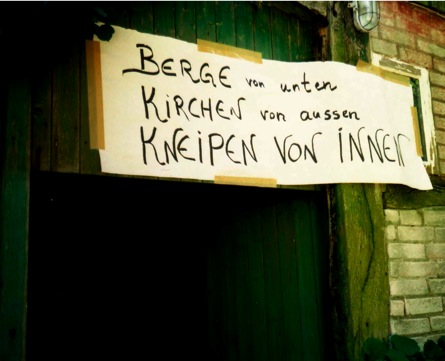 BERGE von unten
KIRCHEN von aussen
KNEIPEN VON INNEN